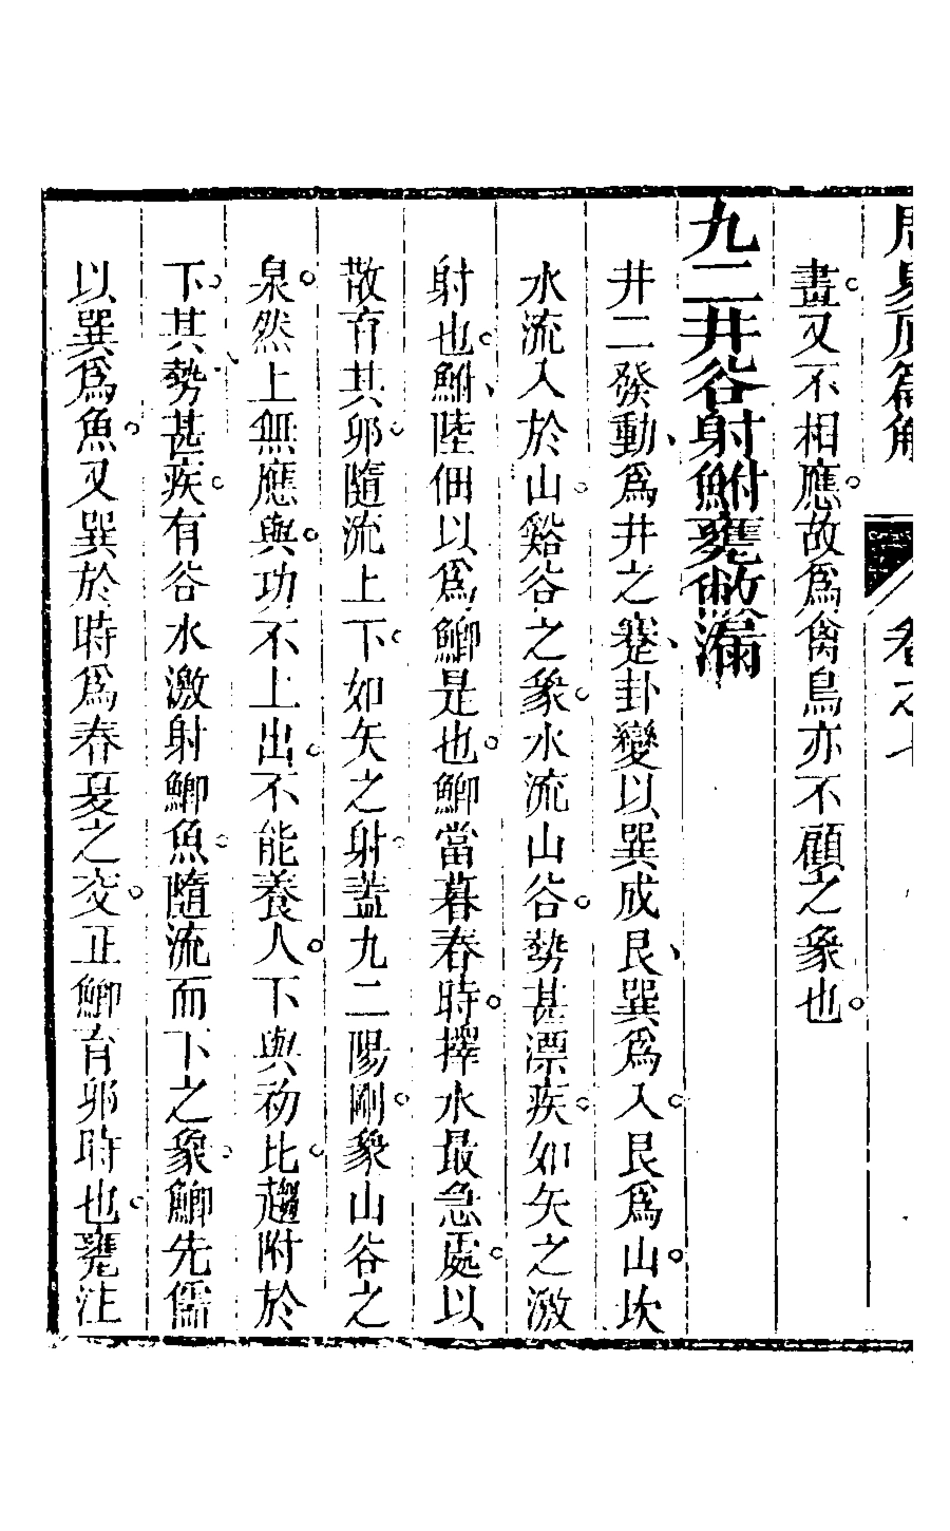 周易原篇解 卷之七
晝又不相應故爲禽鳥亦不顧之象也
九二井谷射鮒甕敝漏
井二發動爲井之蹇卦變以巽成艮巽爲入艮爲山坎
水流入於山谿谷之象水流山谷勢甚漂疾如矢之激
射也鮒陸佃以爲鯽是也鯽當暮春時擇水最急處以
散育其卵隨流上下如矢之射蓋九二陽剛象山谷之
泉然上無應與功不上出不能養人下與初比趨附於
下其勢甚疾有谷水激射鯽魚隨流而下之象鯽先儒
以巽爲魚又巽於時爲春夏之交正鯽育卵時也甕注